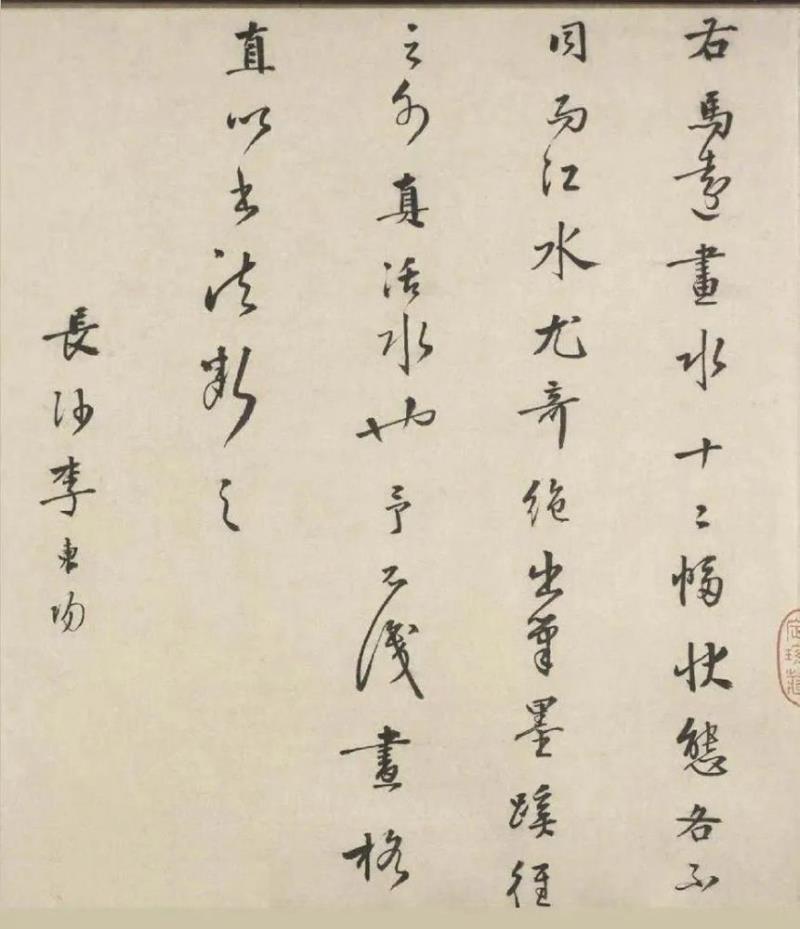 右馬遠畫水十二幅狀態各不
同而江水尤奇絶出筆墨蹊徑
之外真活水也予不識畫格
直以書法斷之
長沙李東陽